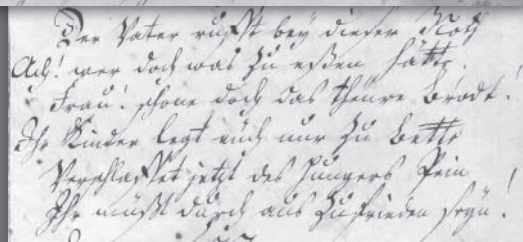 Der Vater rufft bey dieser Noth
Ach! wer doch was zu eßen hätte.
Frau! schone doch das theure Brodt!
Ihr Kinder legt euch nur zu bette
Verschlaffet jetzt des Hungers Pein
Ihr müßt durch aus zufrieden seyn!